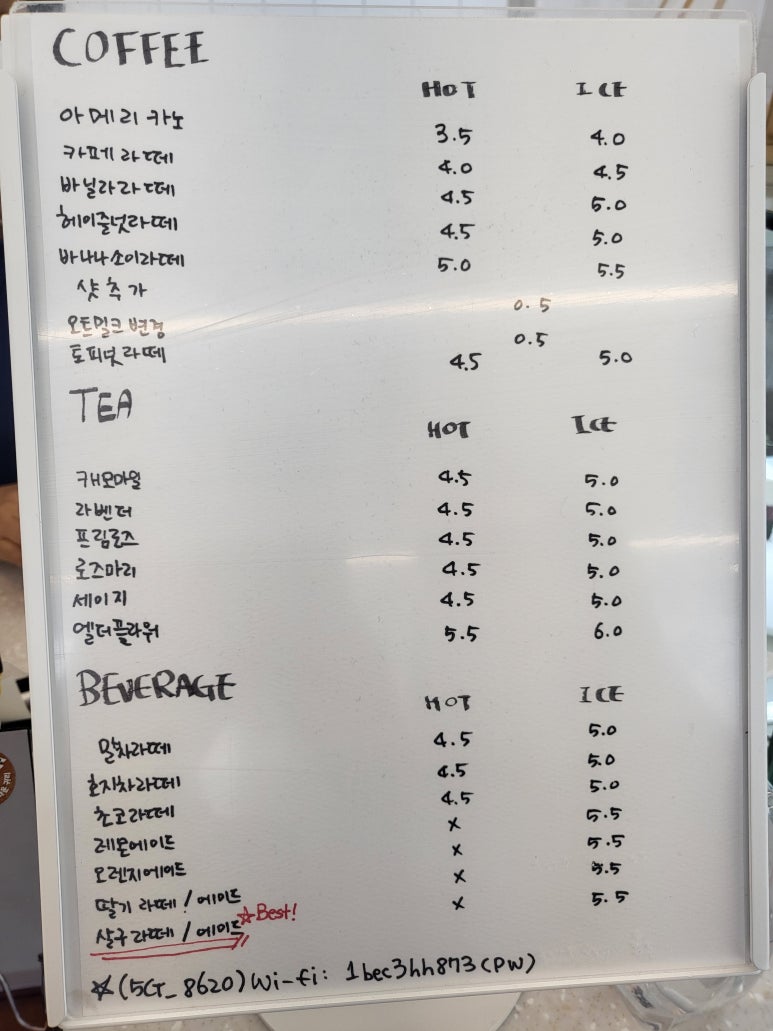 COFFEE
HOT ICE
아메리카노 3.5 4.0
카페라떼 4.0 4.5
바닐라라떼 4.5 5.0
헤이즐넛라떼 4.5 5.0
바나나소이라떼 5.0 5.5
샷추가 0.5
오트밀크 변경 0.5
토피넛라떼 4.5 5.0
TEA
HOT ICE
캐모마일 4.5 5.0
라벤더 4.5 5.0
프림로즈 4.5 5.0
로즈마리 4.5 5.0
세이지 4.5 5.0
엘더플라워 5.5 6.0
BEVERAGE
HOT ICE
말차라떼 4.5 5.0
호지차라떼 4.5 5.0
초코라떼 4.5 5.0
레몬에이드 x 5.5
오렌지에이드 x 5.5
딸기 라떼 / 에이드 x 5.5
살구 라떼 / 에이드 ☆Best! x 5.5
☆(5G_8620) Wi-fi: 1bec3hh873 (PW)